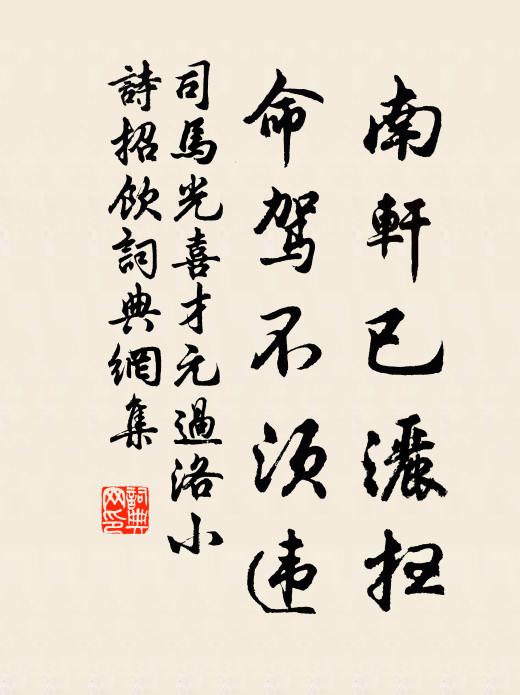 南軒已灑扫
命驾不须违
司馬光喜才元過洛小
詩招飲詞典網集
詞典
网印